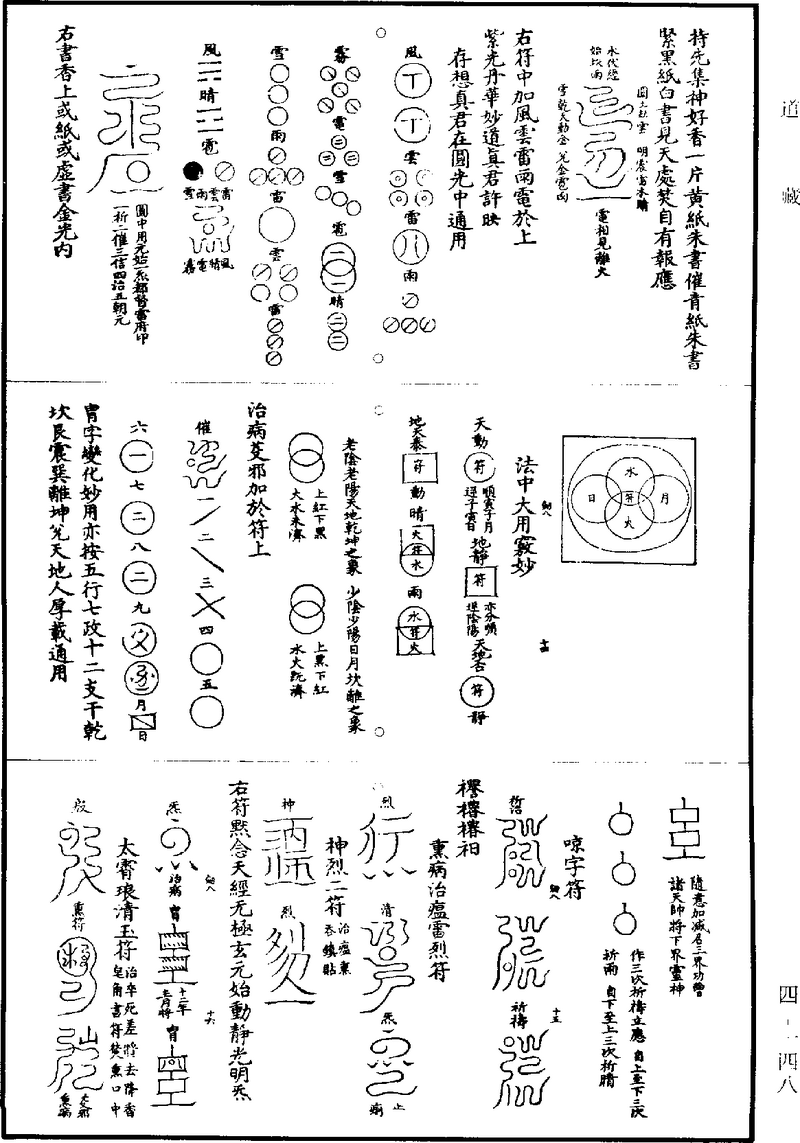 道藏
四-一四八
持先集神好香一片黄紙朱書催青紙朱書
緊黑紙白書見天處焚自有報應
電相見離火
右符中加風雲雷雨電於上
紫光丹華妙道真君許映
存想真君在圓光中通用
風
雲
雷
雨
霧
電
雪
雹
晴
雪
雨
雷
雲
雷
風
晴
雹
雪雨雲雷
霧電晴風
一祈二催三信四治五朝元
右書香上或紙或虛書金光内
水
月
符
日
火
法中大用竅妙
天動
符
地靜
符
天地否
符
靜
地天泰
符
動
晴
火
符
水
雨
水
符
火
老陰老陽天地乾坤之象
少陰少陽日月坎離之象
上紅下黑
火水未濟
上黑下紅
水火既濟
治病茭邪加於符上
催
一
二
三
四
五
六
七
八
九
月
日
胃字變化妙用亦按五行七政十二支干乾
坎艮震巽離坤兊天地人厚載通用
隨意加減召三界功曹
諸天帥將下界靈神
作三次祈禱立應
自上至下三次
祈雨
自下至上三次祈晴
㖫字符
祈禱
十五
熏病治瘟雷烈符
烈
清
炁
神烈二符
治瘟熏
吞鎮貼
神
烈
右符默念天經无極玄元始動靜光明炁
炁
治病
胃
十二年
十六
胃
太霄琅清玉符
治卒死差將去降香
皂角書符焚熏口中
熏符
熏病